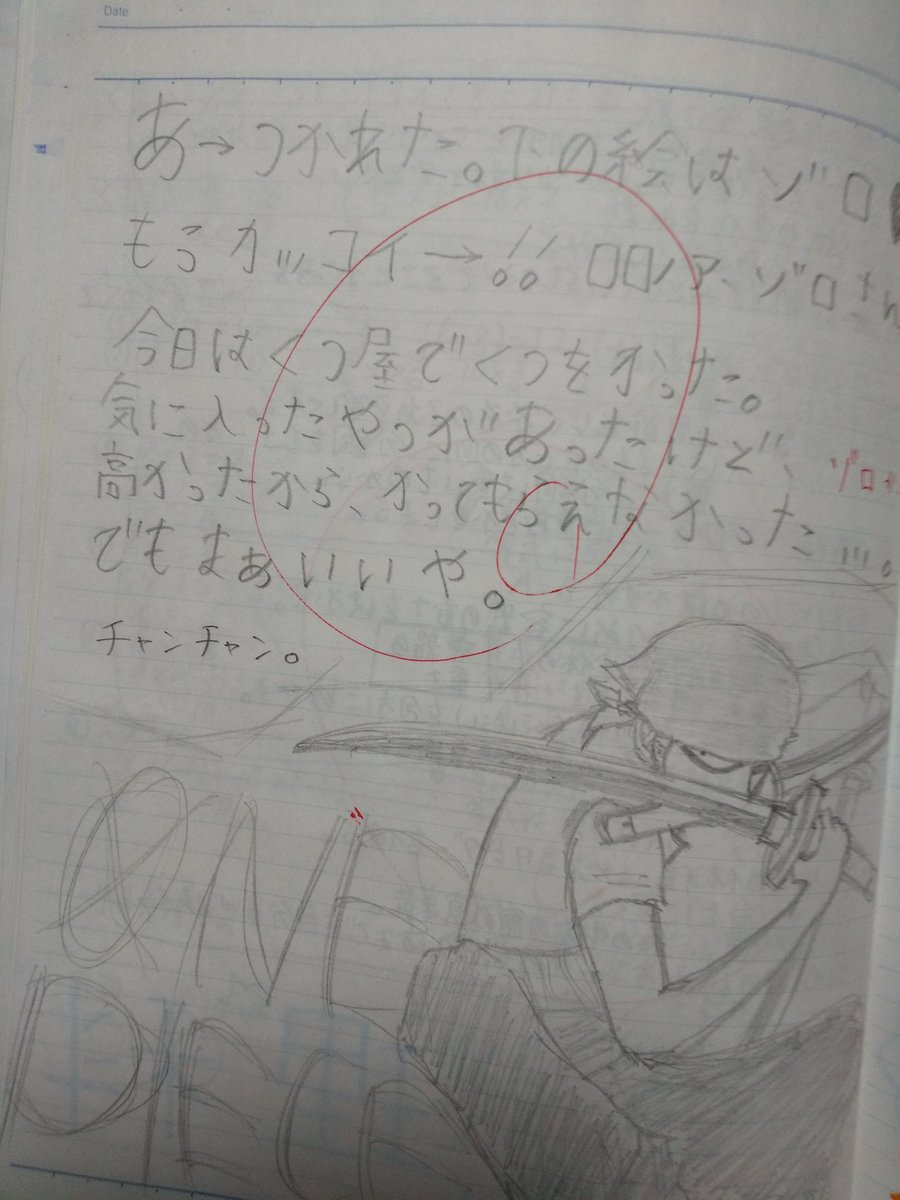 Date
あ→つかれた。下の絵はゾロ
もうカッコイ→!! ロロノア、ゾロさん
今日はくつ屋でくつをかった。
気に入ったやつがあったけど、
高かったから、かってもらえなかった…。
ゾロ
でもまぁいいや。
チャンチャン。
ONE
PIECE